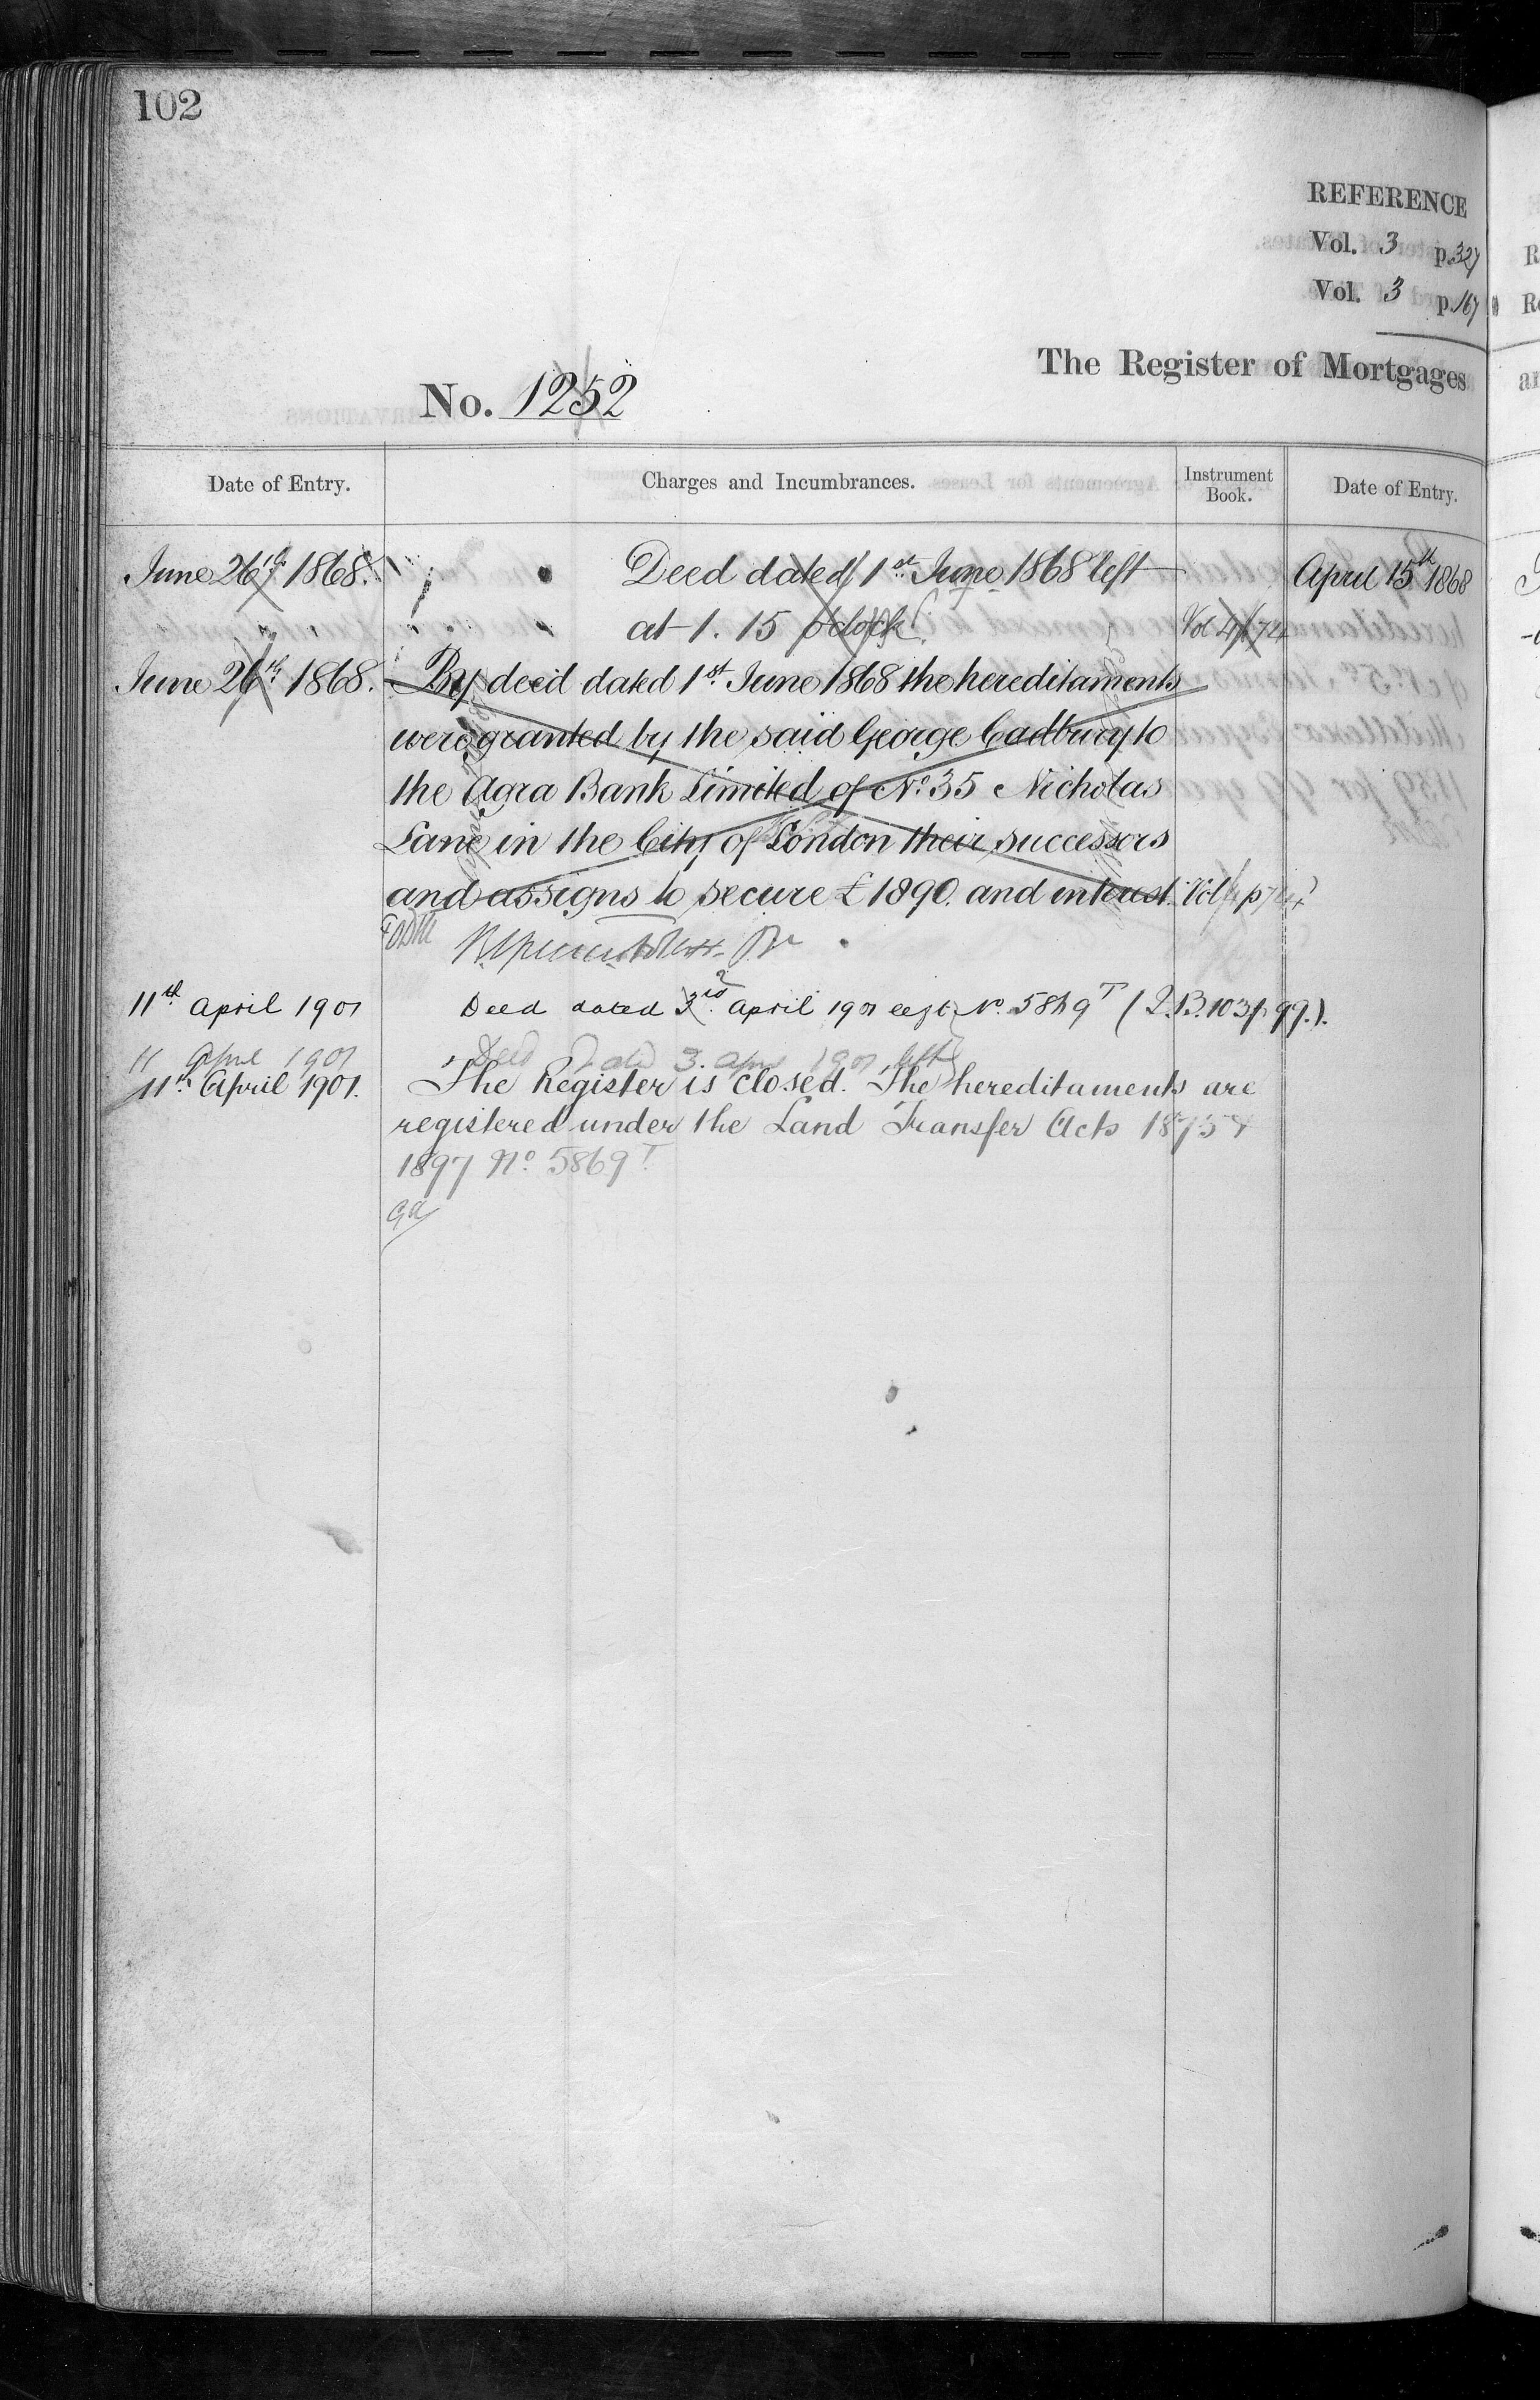 102
REFERENCE
Vol. 3 p. 327
Vol. 3 p. 167
The Register of Mortgages
No. 1252
Date of Entry. Charges and Incumbrances. Instrument Book. Date of Entry.
June 26th 1868. Deed dated 1st June 1868 left April 15th 1868
at 1. 15 o'clock Vol 4 p 74
June 26th 1868. By deed dated 1st June 1868 the hereditaments
were granted by the said George Cadbury to
the Agra Bank Limited of No. 35 Nicholas
Lane in the City of London their successors
and assigns to secure £1890. and interest. Vol 4 p 74
11th April 1901 Deed dated 3rd April 1901 regd. No. 5869T (I.B. 103 p 99.).
11 April 1901 Deed dated 3. April 1901 left
11th April 1901. The Register is closed. The hereditaments are
registered under the Land Transfer Acts 1875 &
1897 No. 5869T